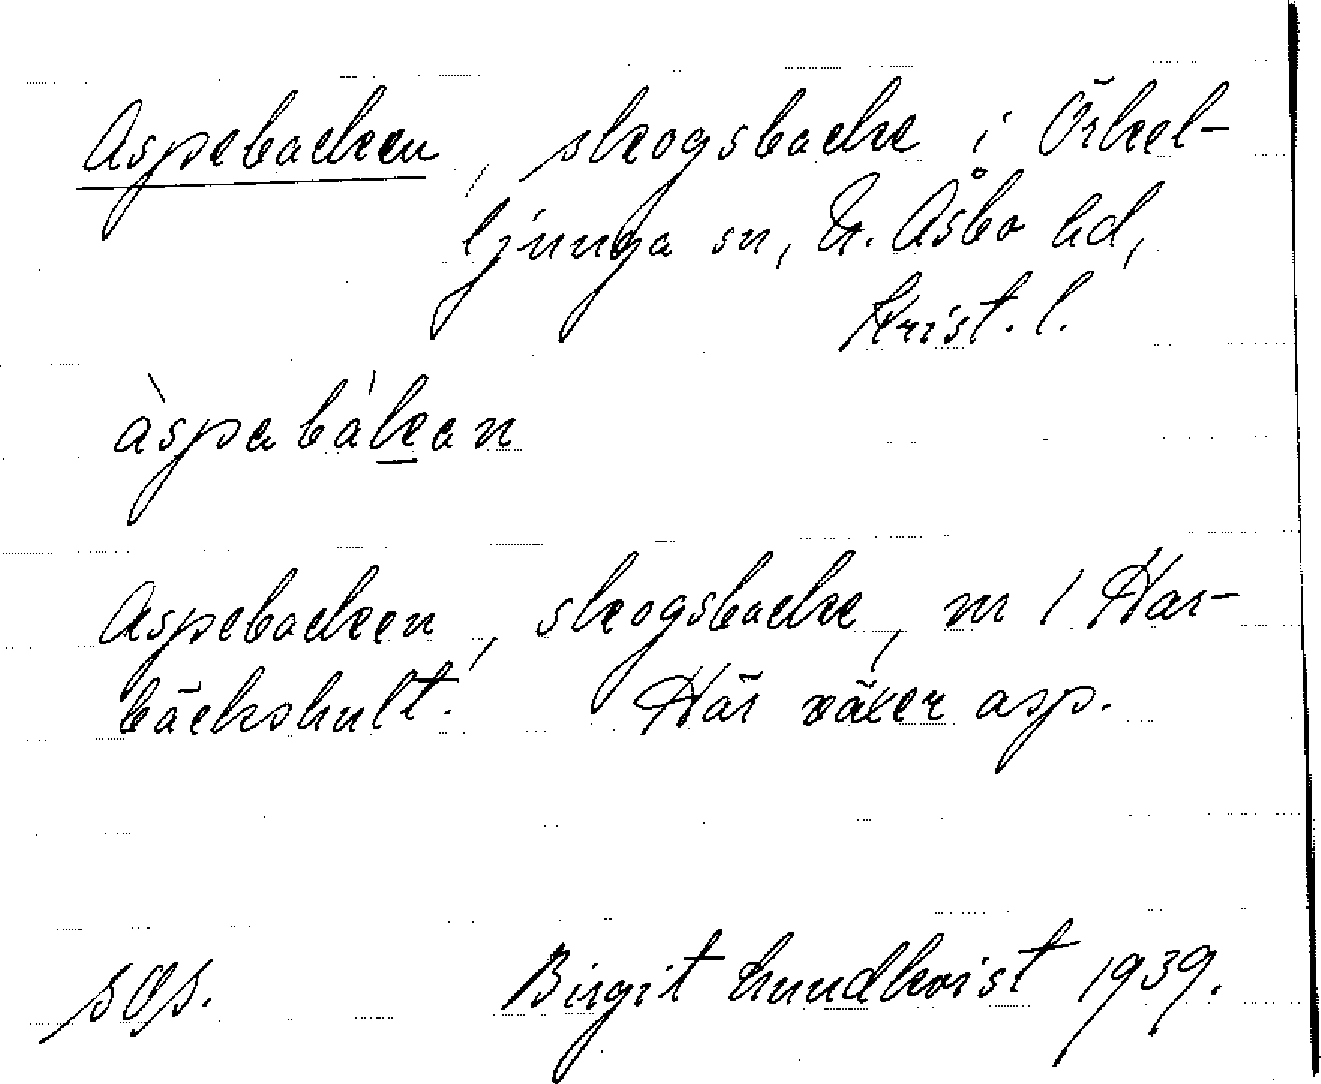 Aspebacken, skogsbacke i Örkel-
ljunga sn, N. Åsbo hd,
Krist. l.
àspabákan
Aspebacken, skogsbacke, nr 1 Har-
bäckshult. Här växer asp.
Birgit Lundkvist 1939.